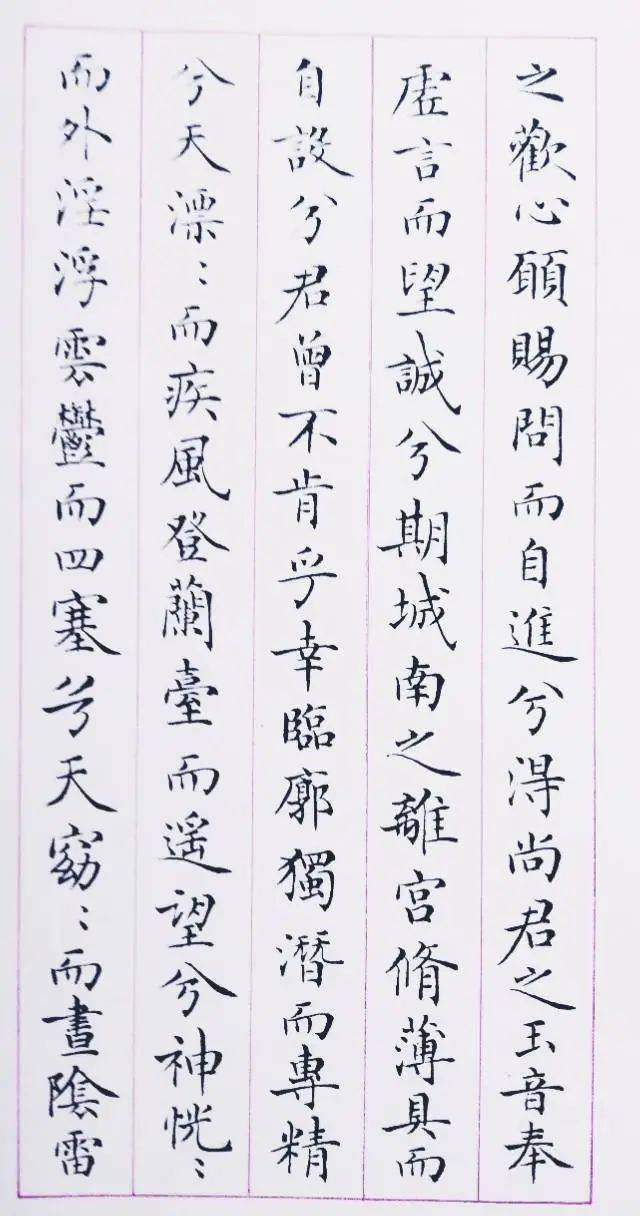 之歡心願賜問而自進兮得尚君之玉音奉
虛言而望誠兮期城南之離宮脩薄具而
自設兮君曾不肯乎幸臨廓獨潛而專精
兮天漂〻而疾風登蘭臺而遥望兮神怳〻
而外淫浮雲鬱而四塞兮天窈〻而晝陰雷